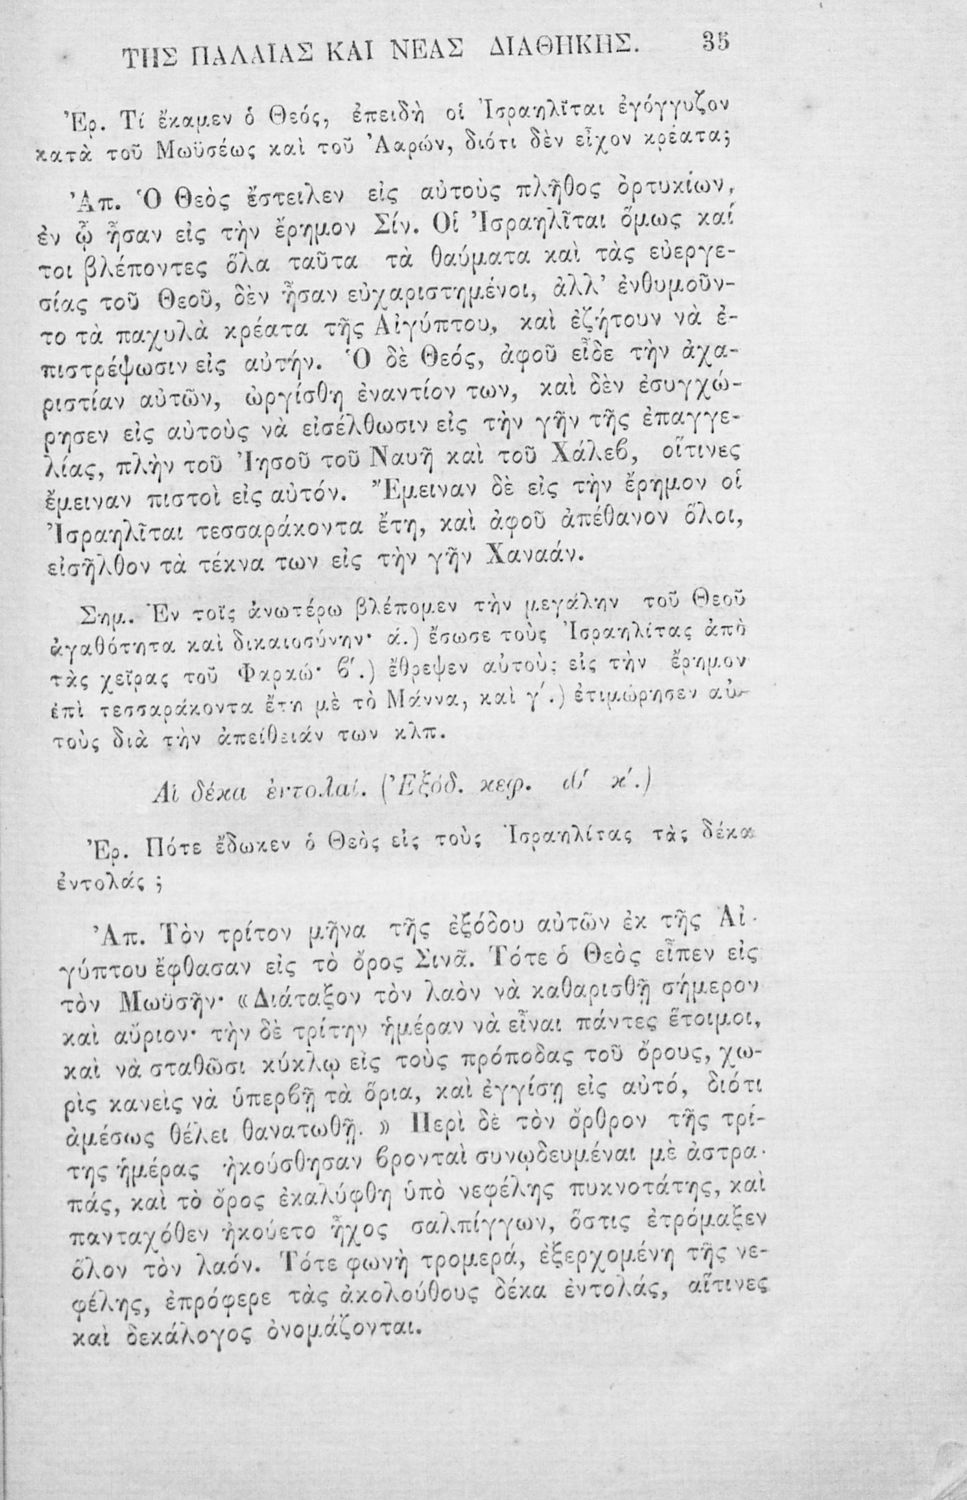 ΤΗΣ ΠΑΛΑΙΑΣ ΚΑΙ ΝΕΑΣ ΔΙΑΘΗΚΗΣ. 35
Ἐρ. Τί ἔκαμεν ὁ Θεός, ἐπειδὴ οἱ Ἰσραηλῖται ἐγόγγυζον
κατὰ τοῦ Μωϋσέως καὶ τοῦ Ἀαρών, διότι δὲν εἶχον κρέατα;
Ἀπ. Ὁ Θεὸς ἔστειλεν εἰς αὐτοὺς πλῆθος ὀρτυκίων,
ἐν ᾧ ἦσαν εἰς τὴν ἔρημον Σίν. Οἱ Ἰσραηλῖται ὅμως καί
τοι βλέποντες ὅλα ταῦτα τὰ θαύματα καὶ τὰς εὐεργε-
σίας τοῦ Θεοῦ, δὲν ἦσαν εὐχαριστημένοι, ἀλλ' ἐνθυμοῦν-
το τὰ παχυλὰ κρέατα τῆς Αἰγύπτου, καὶ ἐζήτουν νὰ ἐ-
πιστρέψωσιν εἰς αὐτήν. Ὁ δὲ Θεός, ἀφοῦ εἶδε τὴν ἀχα-
ριστίαν αὐτῶν, ὠργίσθη ἐναντίον των, καὶ δὲν ἐσυγχώ-
ρησεν εἰς αὐτοὺς νὰ εἰσέλθωσιν εἰς τὴν γῆν τῆς ἐπαγγε-
λίας, πλὴν τοῦ Ἰησοῦ τοῦ Ναυῆ καὶ τοῦ Χάλεϐ, οἵτινες
ἔμειναν πιστοὶ εἰς αὐτόν. Ἔμειναν δὲ εἰς τὴν ἔρημον οἱ
Ἰσραηλῖται τεσσαράκοντα ἔτη, καὶ ἀφοῦ ἀπέθανον ὅλοι,
εἰσῆλθον τὰ τέκνα των εἰς τὴν γῆν Χαναάν.
Σημ. Ἐν τοῖς ἀνωτέρω βλέπομεν τὴν μεγάλην τοῦ Θεοῦ
ἀγαθότητα καὶ δικαιοσύνην· ά.) ἔσωσε τοὺς Ἰσραηλίτας ἀπὸ
τὰς χεῖρας τοῦ Φαραώ· ϐ'.) ἔθρεψεν αὐτοὺς εἰς τὴν ἔρημον
ἐπὶ τεσσαράκοντα ἔτη μὲ τὸ Μάννα, καὶ γ'.) ἐτιμώρησεν αὐ-
τοὺς διὰ τὴν ἀπείθειάν των κλπ.
Αἱ δέκα ἐντολαί. (Ἐξόδ. κεφ. ιθ' κ'.)
Ἐρ. Πότε ἔδωκεν ὁ Θεὸς εἰς τοὺς Ἰσραηλίτας τὰς δέκα
ἐντολάς ;
Ἀπ. Τὸν τρίτον μῆνα τῆς ἐξόδου αὐτῶν ἐκ τῆς Αἰ-
γύπτου ἔφθασαν εἰς τὸ ὄρος Σινᾶ. Τότε ὁ Θεὸς εἶπεν εἰς
τὸν Μωϋσῆν· «Διάταξον τὸν λαὸν νὰ καθαρισθῇ σήμερον
καὶ αὔριον· τὴν δὲ τρίτην ἡμέραν νὰ εἶναι πάντες ἕτοιμοι,
καὶ νὰ σταθῶσι κύκλῳ εἰς τοὺς πρόποδας τοῦ ὄρους, χω-
ρὶς κανεὶς νὰ ὑπερϐῇ τὰ ὅρια, καὶ ἐγγίσῃ εἰς αὐτό, διότι
ἀμέσως θέλει θανατωθῇ. » Περὶ δὲ τὸν ὄρθρον τῆς τρί-
της ἡμέρας ἠκούσθησαν ϐρονταὶ συνῳδευμέναι μὲ ἀστρα-
πάς, καὶ τὸ ὄρος ἐκαλύφθη ὑπὸ νεφέλης πυκνοτάτης, καὶ
πανταχόθεν ἠκούετο ἦχος σαλπίγγων, ὅστις ἐτρόμαξεν
ὅλον τὸν λαόν. Τότε φωνὴ τρομερά, ἐξερχομένη τῆς νε-
φέλης, ἐπρόφερε τὰς ἀκολούθους δέκα ἐντολάς, αἵτινες
καὶ δεκάλογος ὀνομάζονται.